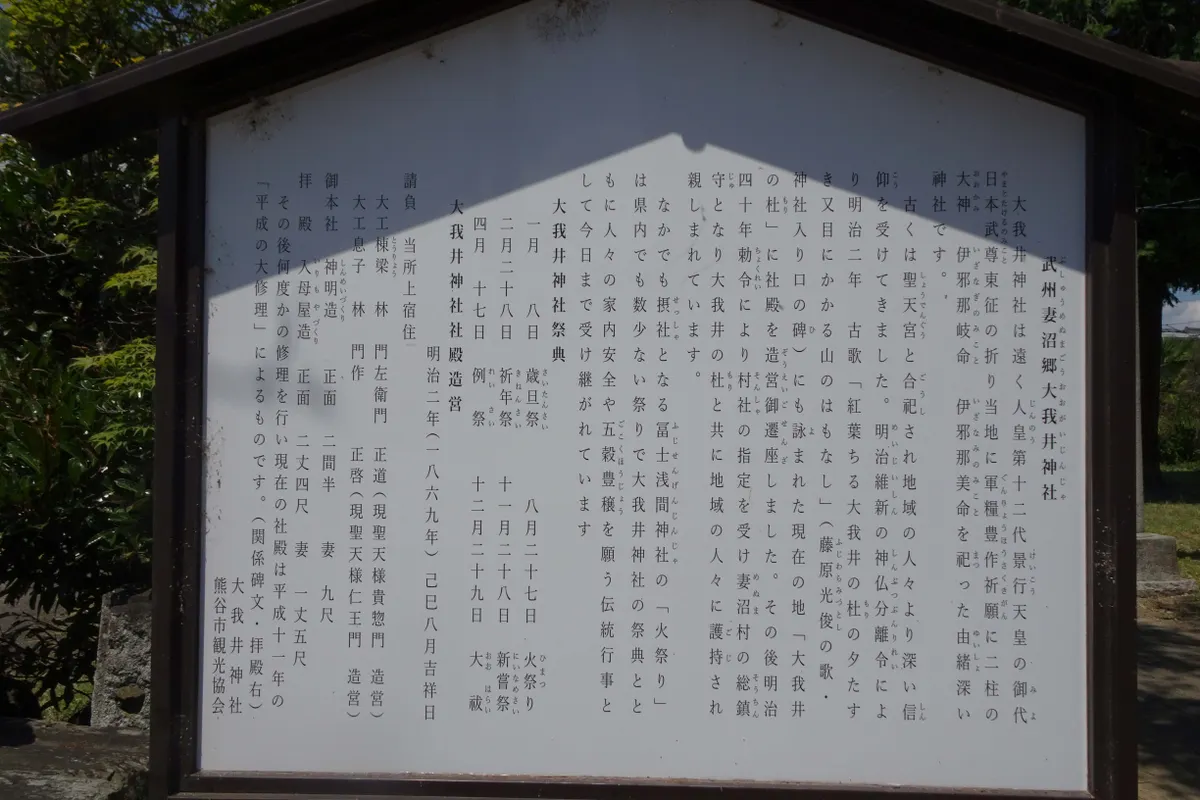 武州妻沼郷大我井神社
大我井神社は遠く人皇第十二代景行天皇の御代
日本武尊東征の折り当地に軍糧豊作祈願に二柱の
大神 伊邪那岐命 伊邪那美命を祀った由緒深い
神社です。
古くは聖天宮と合祀され地域の人々より深い信
仰を受けてきました。明治維新の神仏分離令によ
り明治二年 古歌「紅葉ちる大我井の杜の夕たす
き又目にかかる山のはもなし」(藤原光俊の歌・
神社入り口の碑)にも詠まれた現在の地「大我井
の杜」に社殿を造営御遷座しました。その後明治
四十年勅令により村社の指定を受け妻沼村の総鎮
守となり大我井の杜と共に地域の人々に護持され
親しまれています。
なかでも摂社となる冨士浅間神社の「火祭り」
は県内でも数少ない祭りで大我井神社の祭典とと
もに人々の家内安全や五穀豊穣を願う伝統行事と
して今日まで受け継がれています
大我井神社祭典
一月 八日 歳旦祭 八月二十七日 火祭り
二月二十八日 祈年祭 十一月二十八日 新嘗祭
四月 十七日 例祭 十二月二十九日 大祓
大我井神社社殿造営
明治二年(一八六九年)己巳八月吉祥日
請負 当所上宿住
大工棟梁 林 門左衛門 正道(現聖天様貴惣門 造営)
大工息子 林 門作 正啓(現聖天様仁王門 造営)
御本社 神明造 正面 二間半 妻 九尺
拝殿 入母屋造 正面 二丈四尺 妻 一丈五尺
その後何度かの修理を行い現在の社殿は平成十一年の
「平成の大修理」によるものです。(関係碑文・拝殿右)
大我井神社
熊谷市観光協会